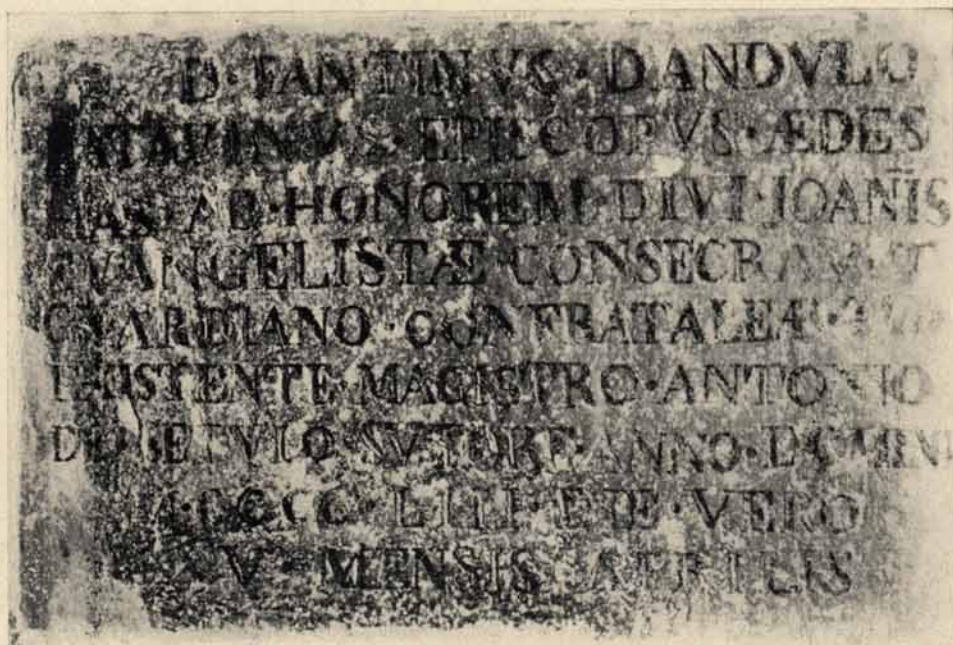 D · FANTINVS · DANDVLO
PATAVINVS · EPISCOPVS · ÆDES
HAS · AD · HONOREM · DIVI · IOAN̄IS
EVANGELISTÆ · CONSECRAVIT
GVARDIANO · CONFRATALEAE
EXISTENTE · MAGISTRO · ANTONIO
SVTORE · ANNO · DOMINI
M · CCCC · LIII · DIE · VERO
V · MENSIS · APRILIS